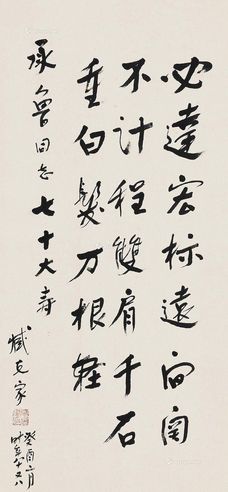 必達宏标遠间関
不计程雙肩千石
重白髮万根轻
承鲁同志七十大寿
臧克家
癸酉月
时年八十又八